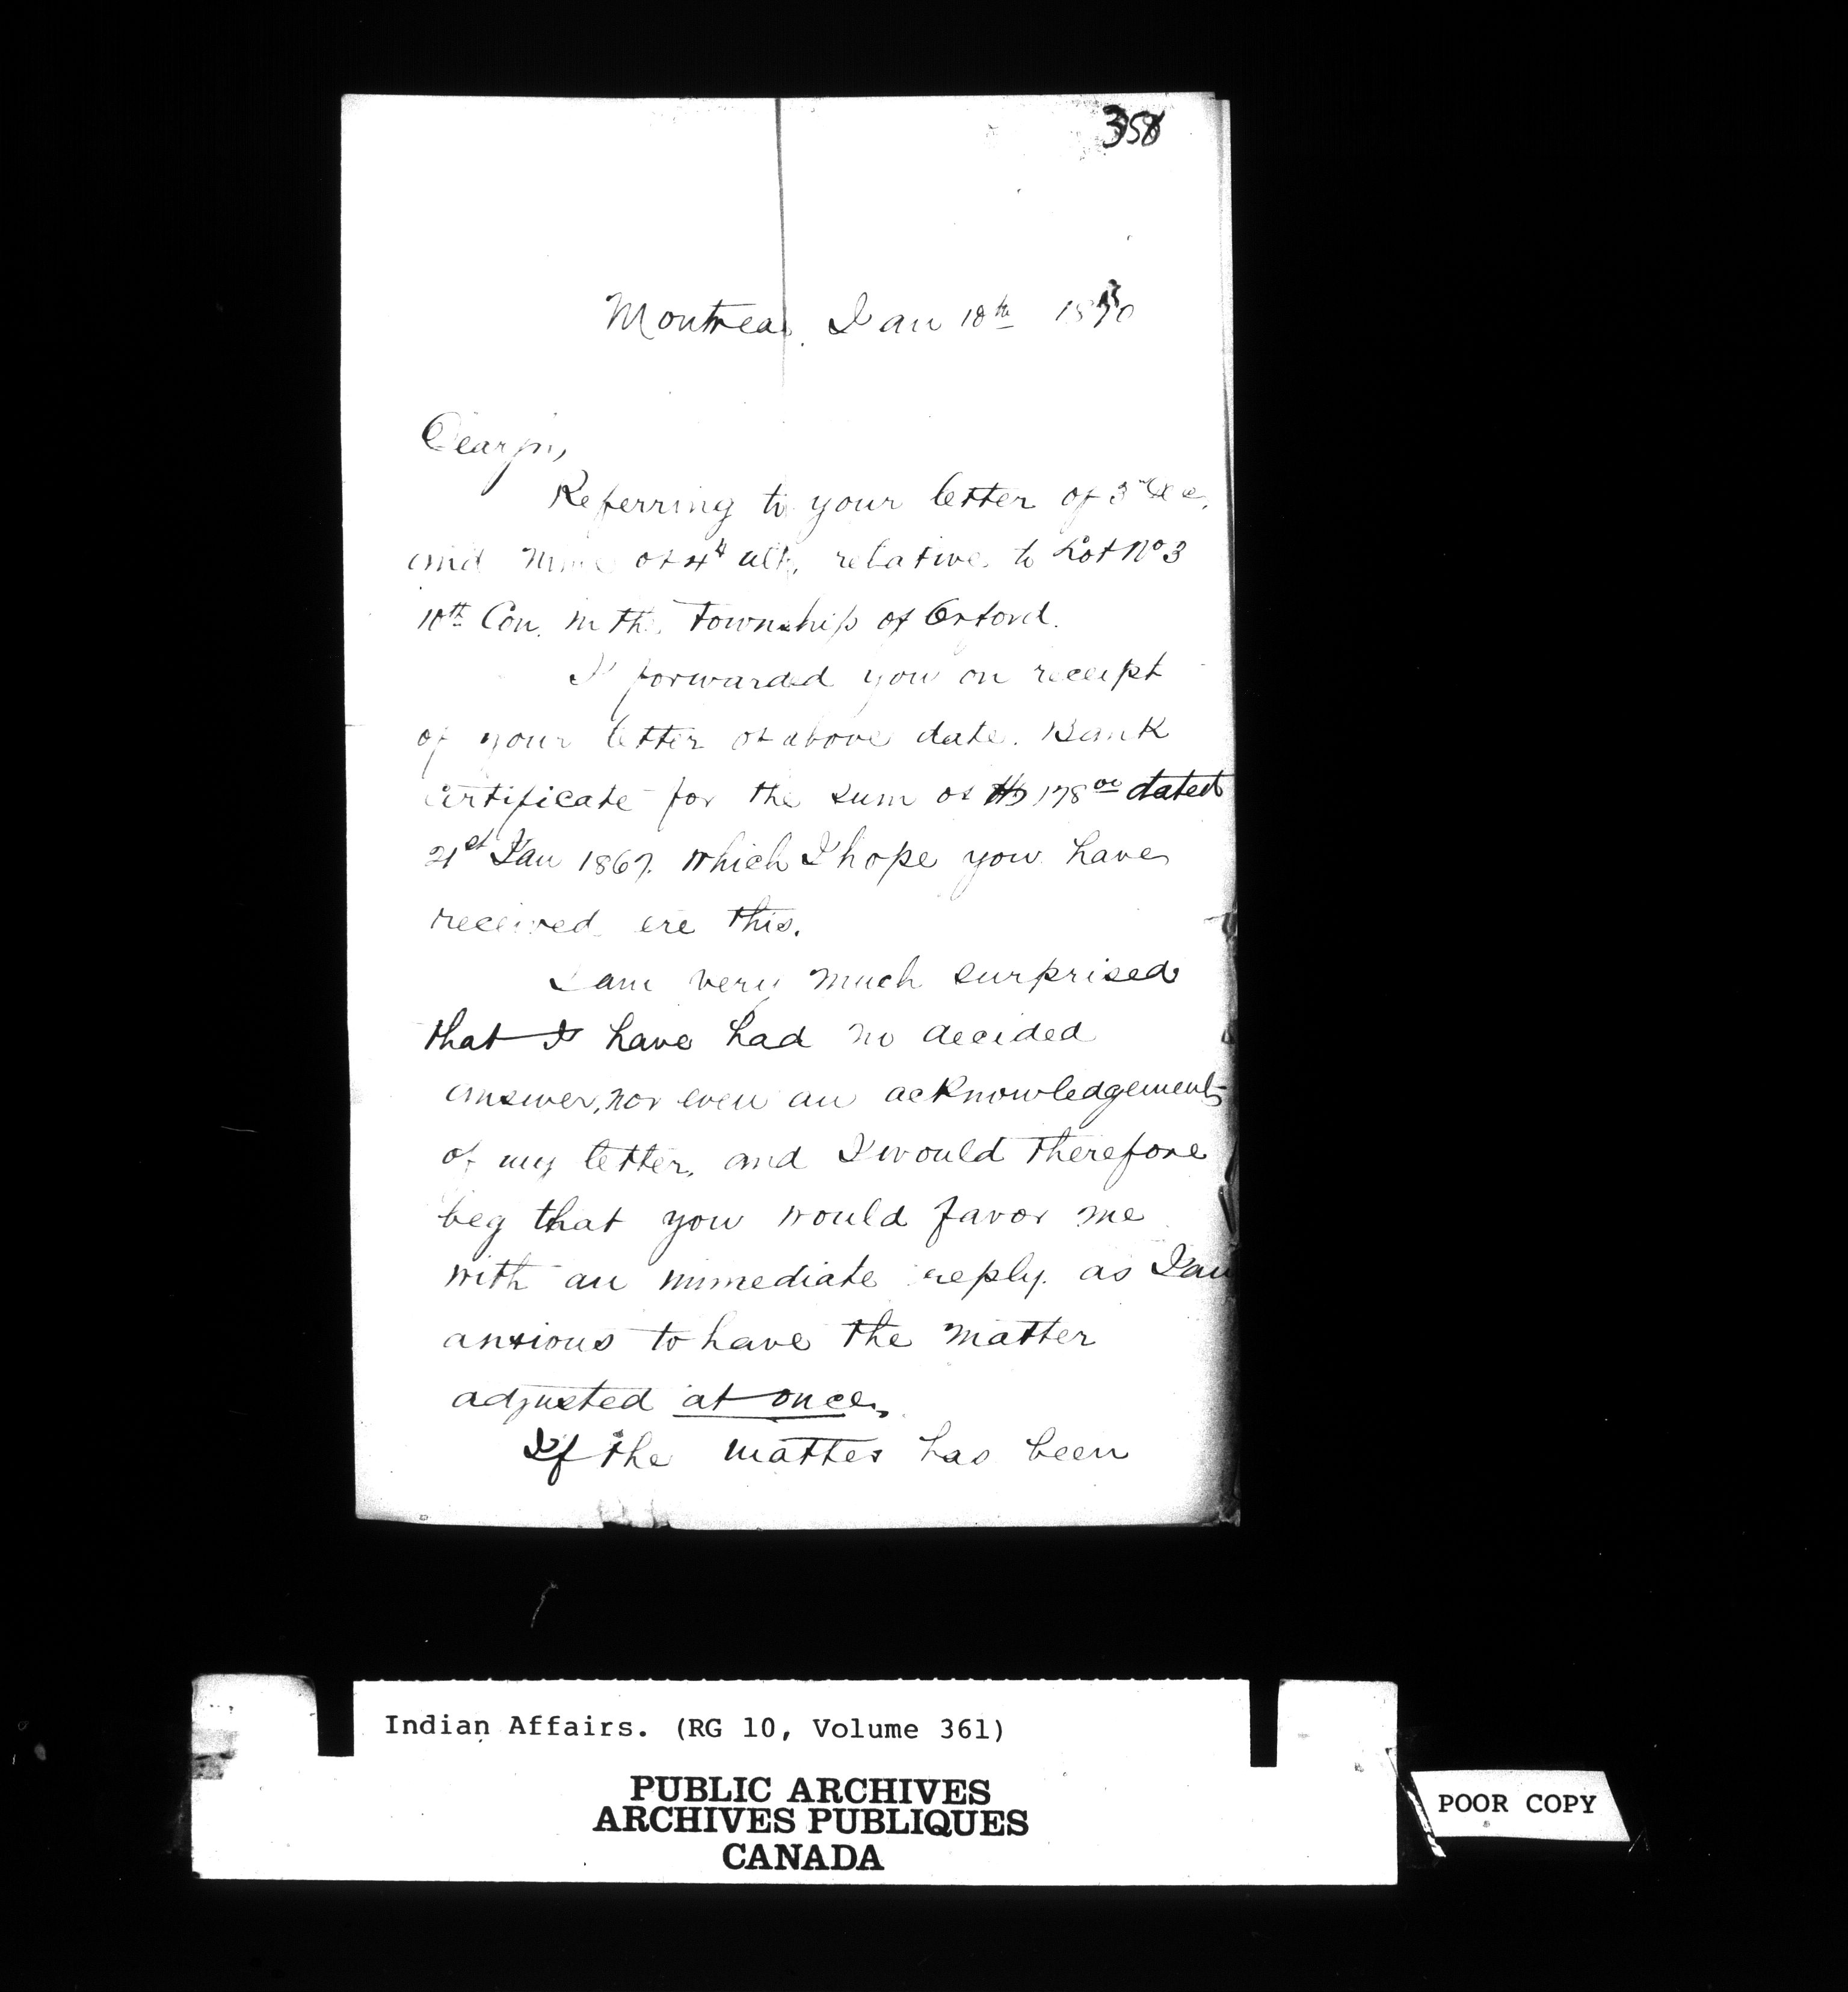 358
Montreal. Jan 18th 1870
Dear Sir,
Referring to your letter of 3rd Dec.
and mine of 4th ult. relative to Lot No 3
10th Con. in the Township of Orford.
I forwarded you on receipt
of your letter of above date. Bank
Certificate for the sum of $178 00 dated
21st Jan 1867. which I hope you have
received ere this.
I am very much surprised
that I have had no decided
answer, nor even an acknowledgement
of my letter, and I would therefore
beg that you would favor me
with an immediate reply. as I am
anxious to have the matter
adjusted at once,
If the matter has been
Indian Affairs. (RG 10, Volume 361)
PUBLIC ARCHIVES
ARCHIVES PUBLIQUES
CANADA
POOR COPY